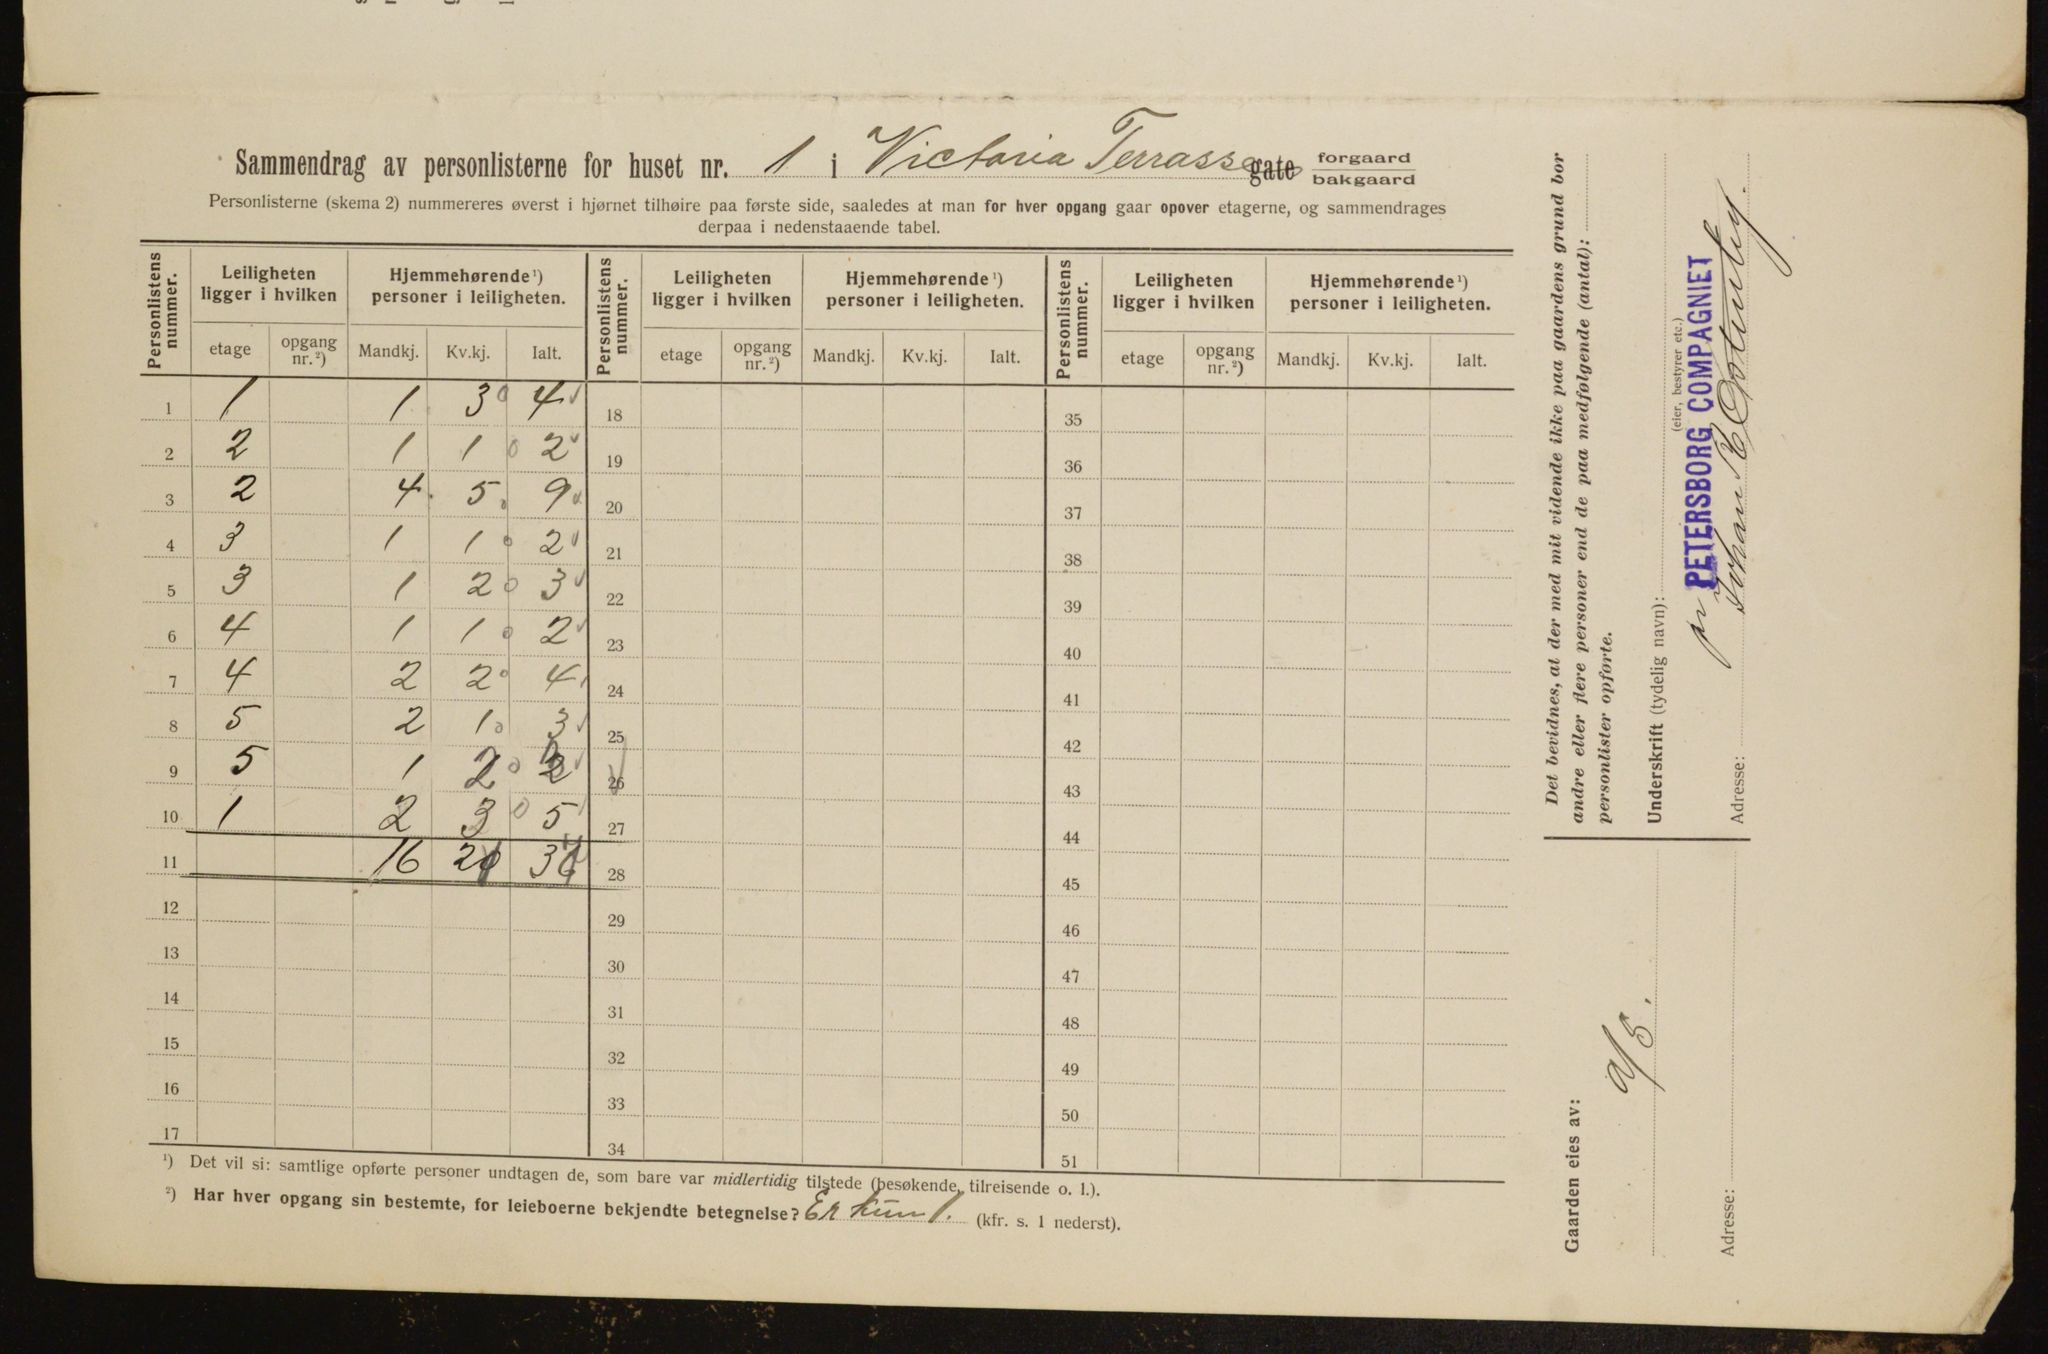 Sammendrag av personlisterne for huset nr. 1 i Victoria Terrasse gate forgaard
bakgaard
Personlisterne (skema 2) nummereres øverst i hjørnet tilhøire paa første side, saaledes at man for hver opgang gaar opover etagerne, og sammendrages
derpaa i nedenstaaende tabel.
Personlistens nummer. Leiligheten ligger i hvilken Hjemmehørende ¹) personer i leiligheten. Personlistens nummer. Leiligheten ligger i hvilken Hjemmehørende ¹) personer i leiligheten. Personlistens nummer. Leiligheten ligger i hvilken Hjemmehørende ¹) personer i leiligheten.
etage opgang nr. ²) Mandkj. Kv.kj. Ialt. etage opgang nr. ²) Mandkj. Kv.kj. Ialt. etage opgang nr. ²) Mandkj. Kv.kj. Ialt.
1 1 1 3 4 18 35
2 2 1 1 2 19 36
3 2 4 5 9 20 37
4 3 1 1 2 21 38
5 3 1 2 3 22 39
6 4 1 1 2 23 40
7 4 2 2 4 24 41
8 5 2 1 3 25 42
9 5 1 2 26 43
10 1 2 3 5 27 44
11 16 28 45
12 29 46
13 30 47
14 31 48
15 32 49
16 33 50
17 34 51
¹) Det vil si: samtlige opførte personer undtagen de, som bare var midlertidig tilstede (besøkende, tilreisende o. l.).
²) Har hver opgang sin bestemte, for leieboerne bekjendte betegnelse? Er kun 1. (kfr. s. 1 nederst).
Det bevidnes, at der med mit vidende ikke paa gaardens grund bor
andre eller flere personer end de paa medfølgende (antal):
personlister opførte.
Underskrift (tydelig navn):
(eier, bestyrer etc.)
pr PETERSBORG COMPAGNIET
Johan R
Adresse:
Gaarden eies av:
a/s.
Adresse: